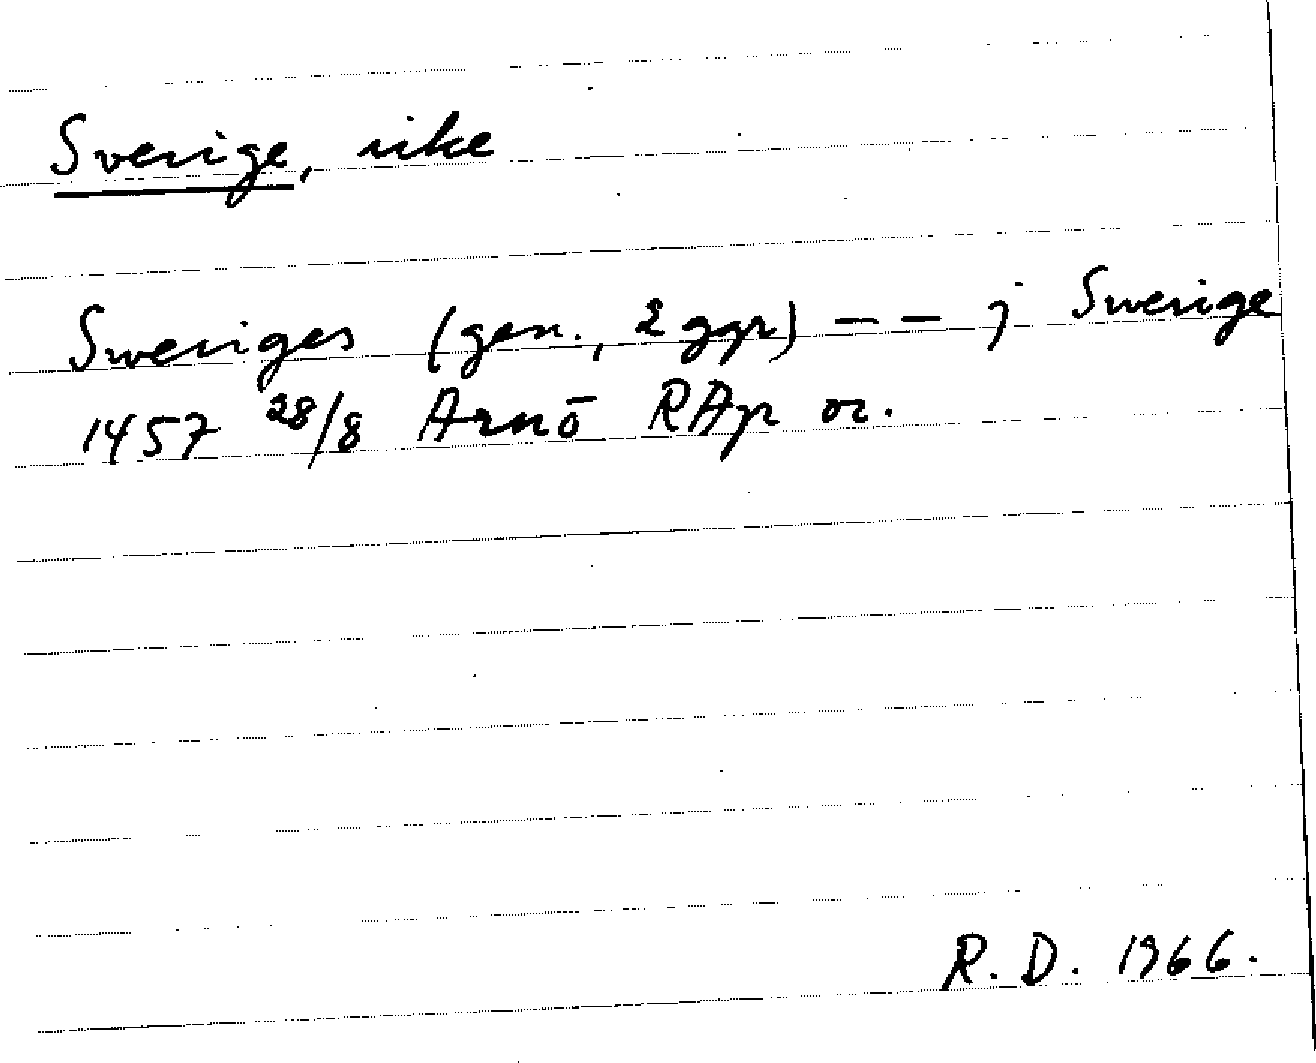 Sverige, rike
Sweriges (gen., 2 ggr) – – j Swerige
1457 28/8 Arnö RAp or.
R. D. 1966.